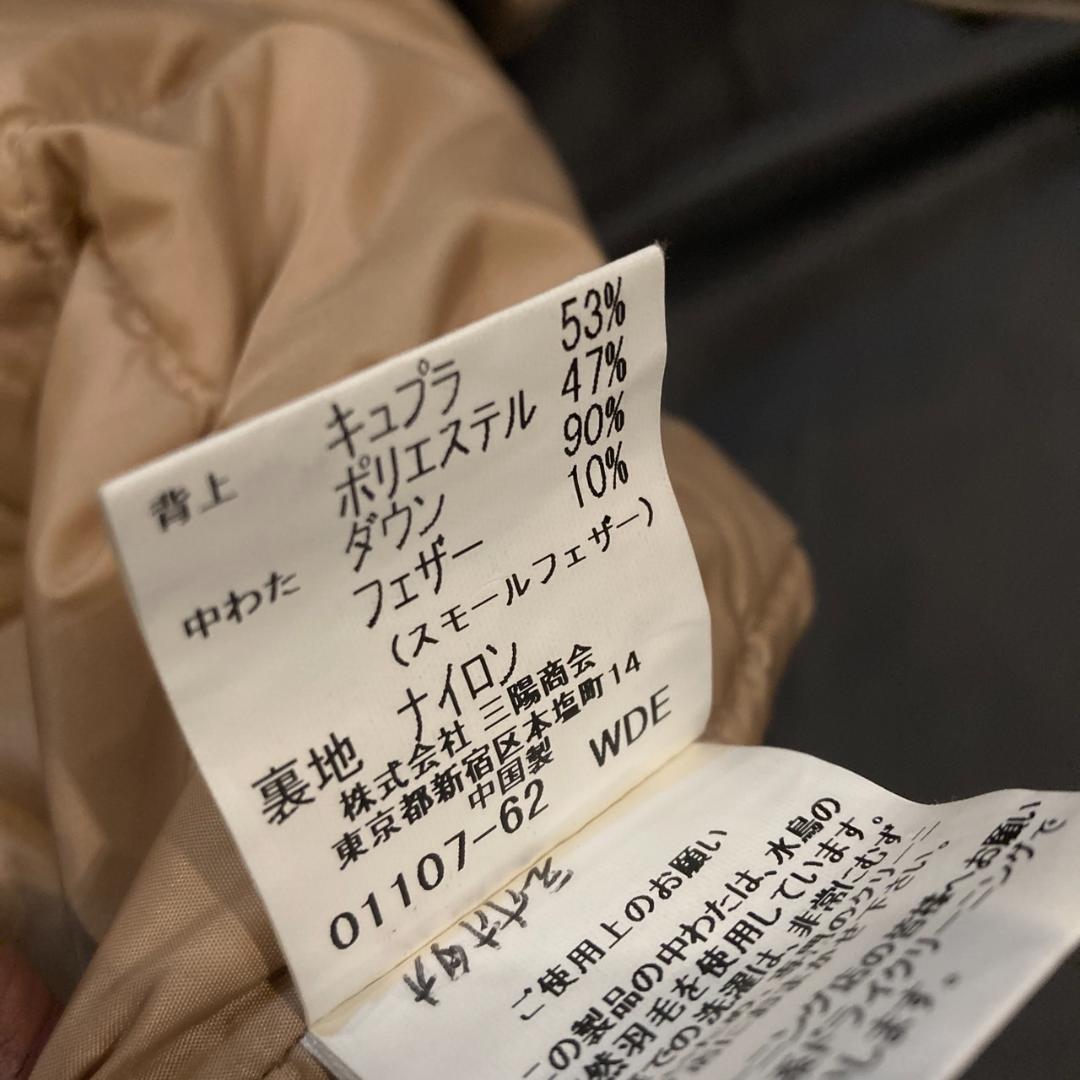 キュプラ 53%
背上 ポリエステル 47%
ダウン 90%
中わた フェザー 10%
(スモールフェザー)
裏地 ナイロン
株式会社 三陽商会
東京都新宿区本塩町14
中国製 WDE
01107-62
ご使用上のお願い
の製品の中わたは、水鳥の
然羽毛を使用しています。
での洗濯は、非常にむず
ング店の皆様へお願い
ドライクリーニングで
します。